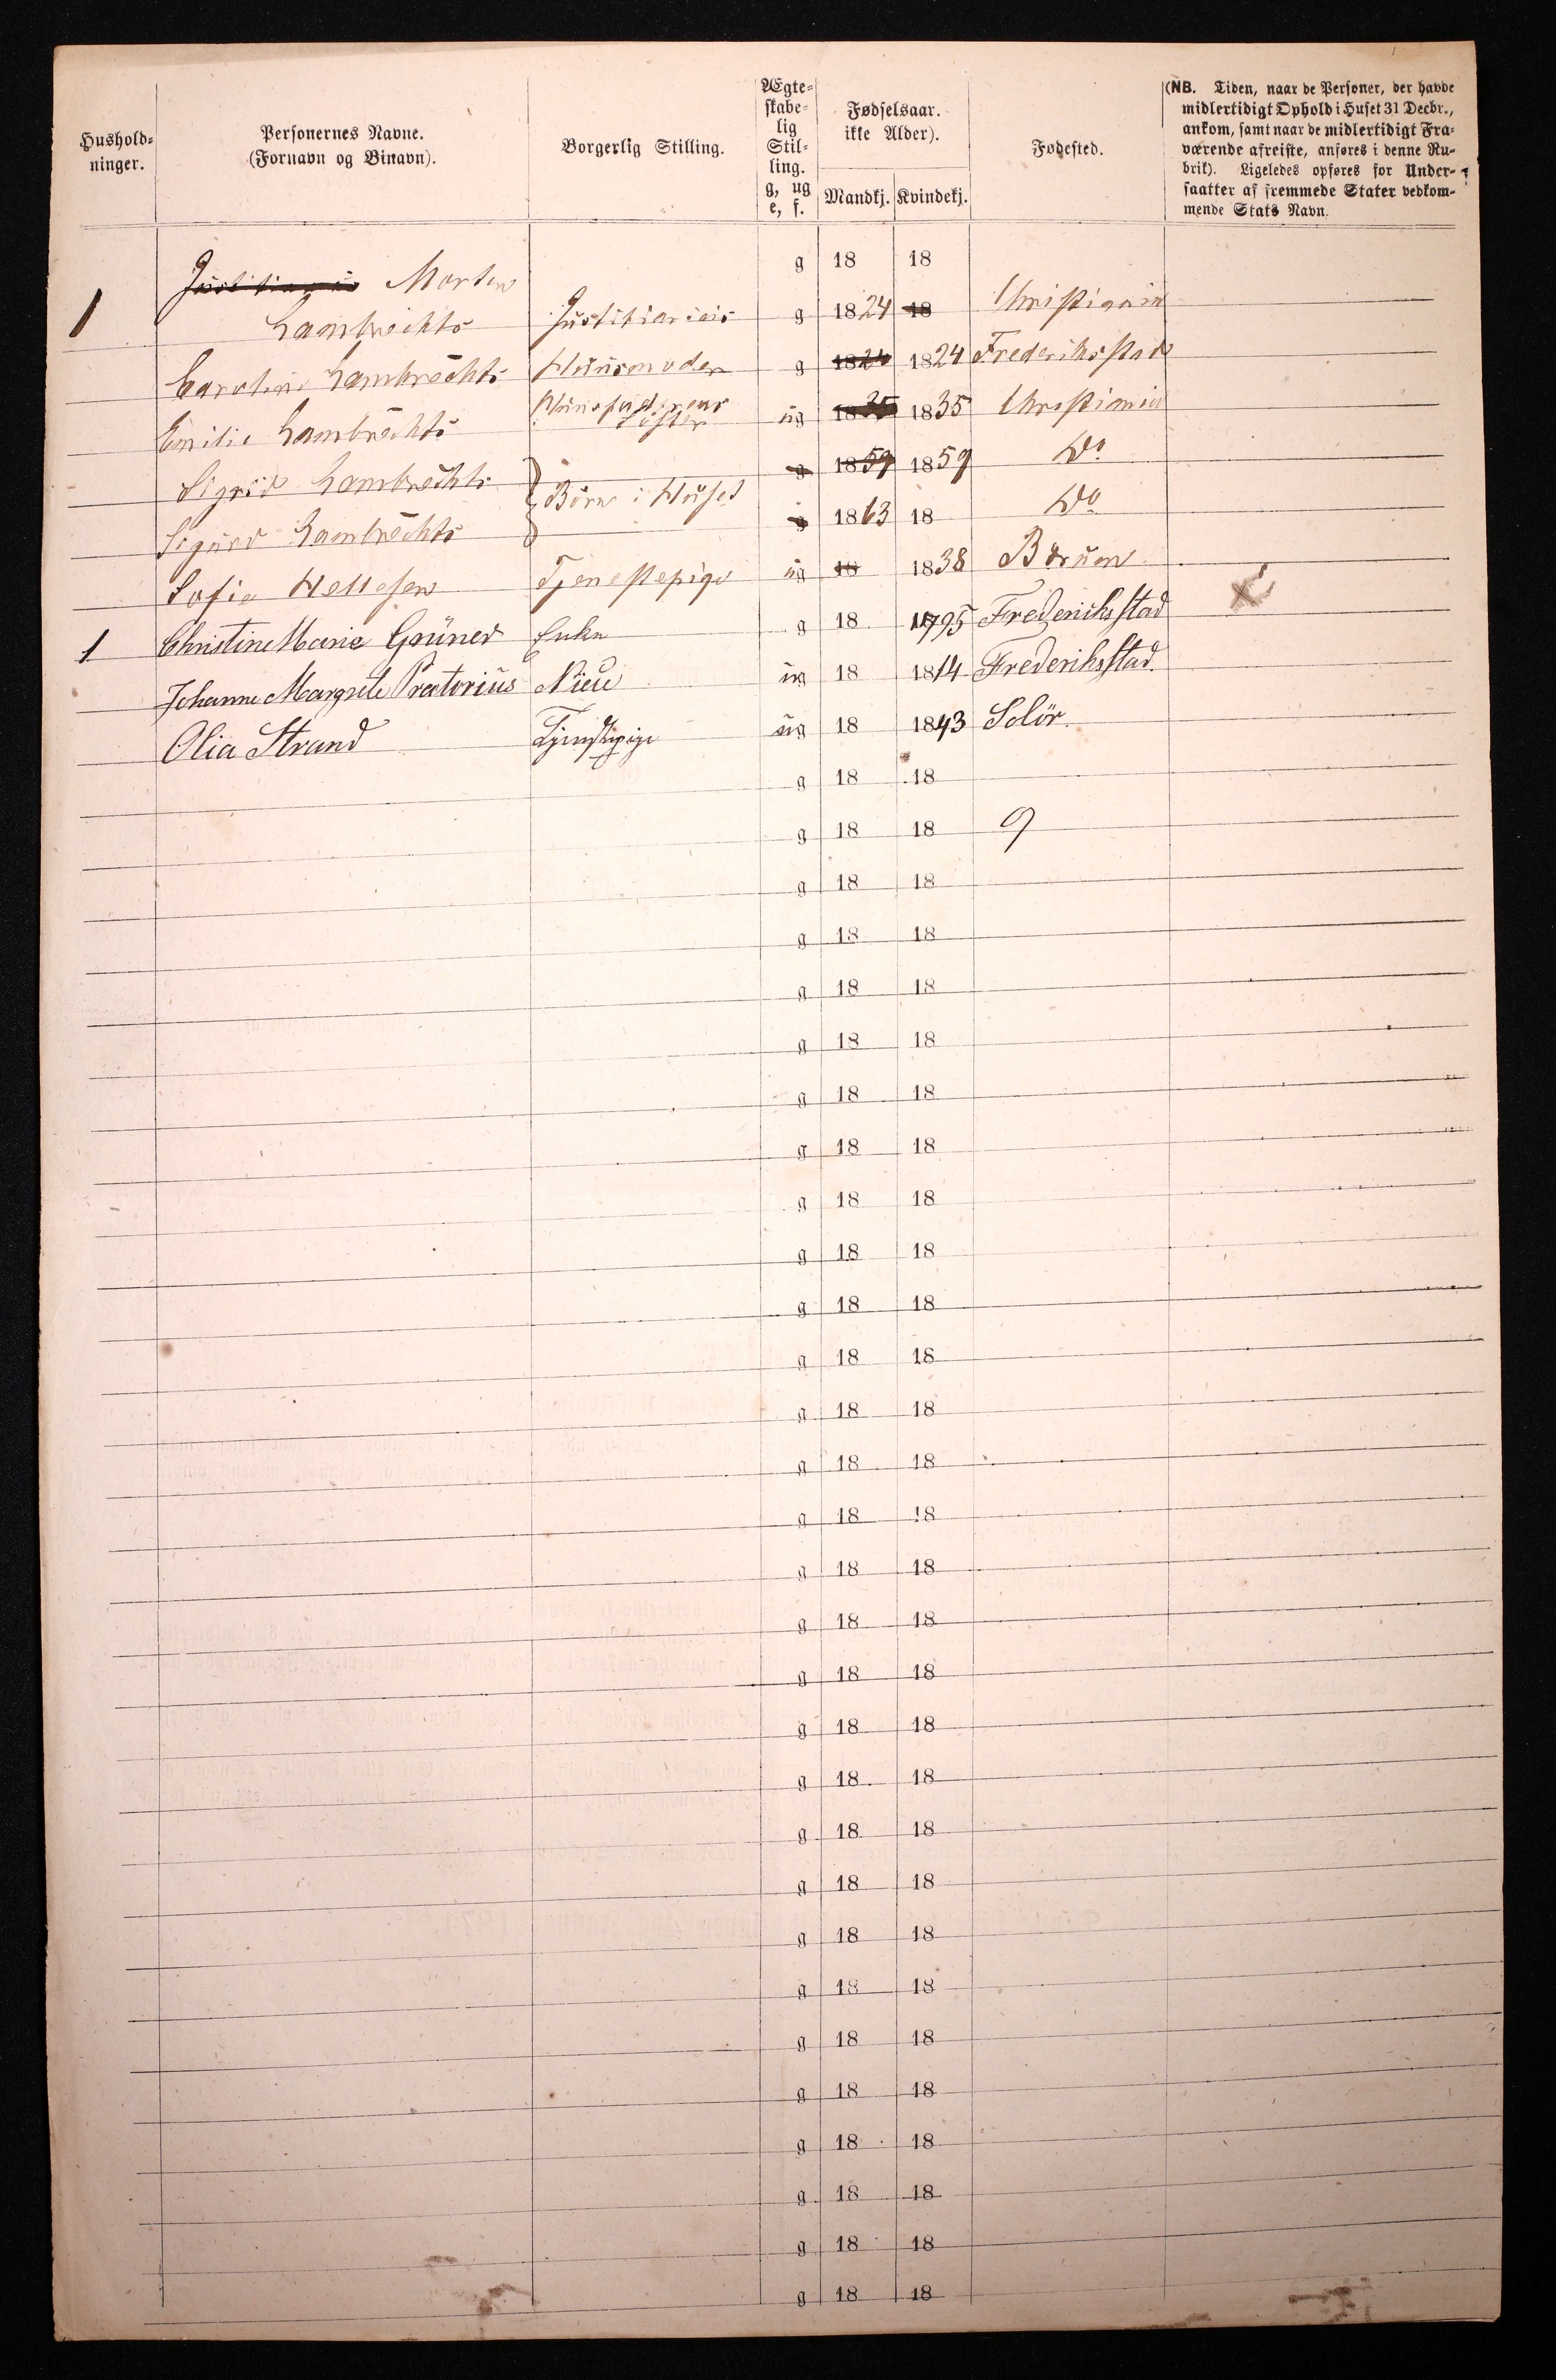 Hushold-
ninger.
Personernes Navne.
(Fornavn og Binavn).
Borgerlig Stilling.
Ægte-
skabe-
lig
Stil-
ling.
g, ug
e, f.
Fødselsaar.
ikke Alder).
Mandkj. Kvindekj.
Fødested.
(NB. Tiden, naar de Personer, der havde
midlertidigt Ophold i Huset 31 Decbr.,
ankom, samt naar de midlertidigt Fra-
værende afreiste, anføres i denne Ru-
brik). Ligeledes opføres for Under-
saatter af fremmede Stater vedkom-
mende Stats Navn.
Justitiarius Morten g 18 18
1 Lambrechts Justitiarius g 1824 18 Christiania
Caroline Lambrechts Huusmoder g 1824 1824 Frederiksstad
Emilie Lambrechts Huusfaderens Søster ug 1835 1835 Christiania
Sigrid Lambrechts g 1859 1859 Do
Børn i Huset
Sigurd Lambrechts g 1863 18 Do
Sofie Hellesen Tjenestepige ug 18 1838 Bærum
1 Christine Marie Grüner Enke g 18 1795 Frederiksstad x
Johanne Margrete Pretorius Niece ug 18 1814 Frederiksstad.
Olia Strand Tjenestepige ug 18 1843 Solör.
g 18 18
g 18 18 9
g 18 18
g 18 18
g 18 18
g 18 18
g 18 18
g 18 18
g 18 18
g 18 18
g 18 18
g 18 18
g 18 18
g 18 18
g 18 18
g 18 18
g 18 18
g 18 18
g 18 18
g 18 18
g 18 18
g 18 18
g 18 18
g 18 18
g 18 18
g 18 18
g 18 18
g 18 18
g 18 18
g 18 18